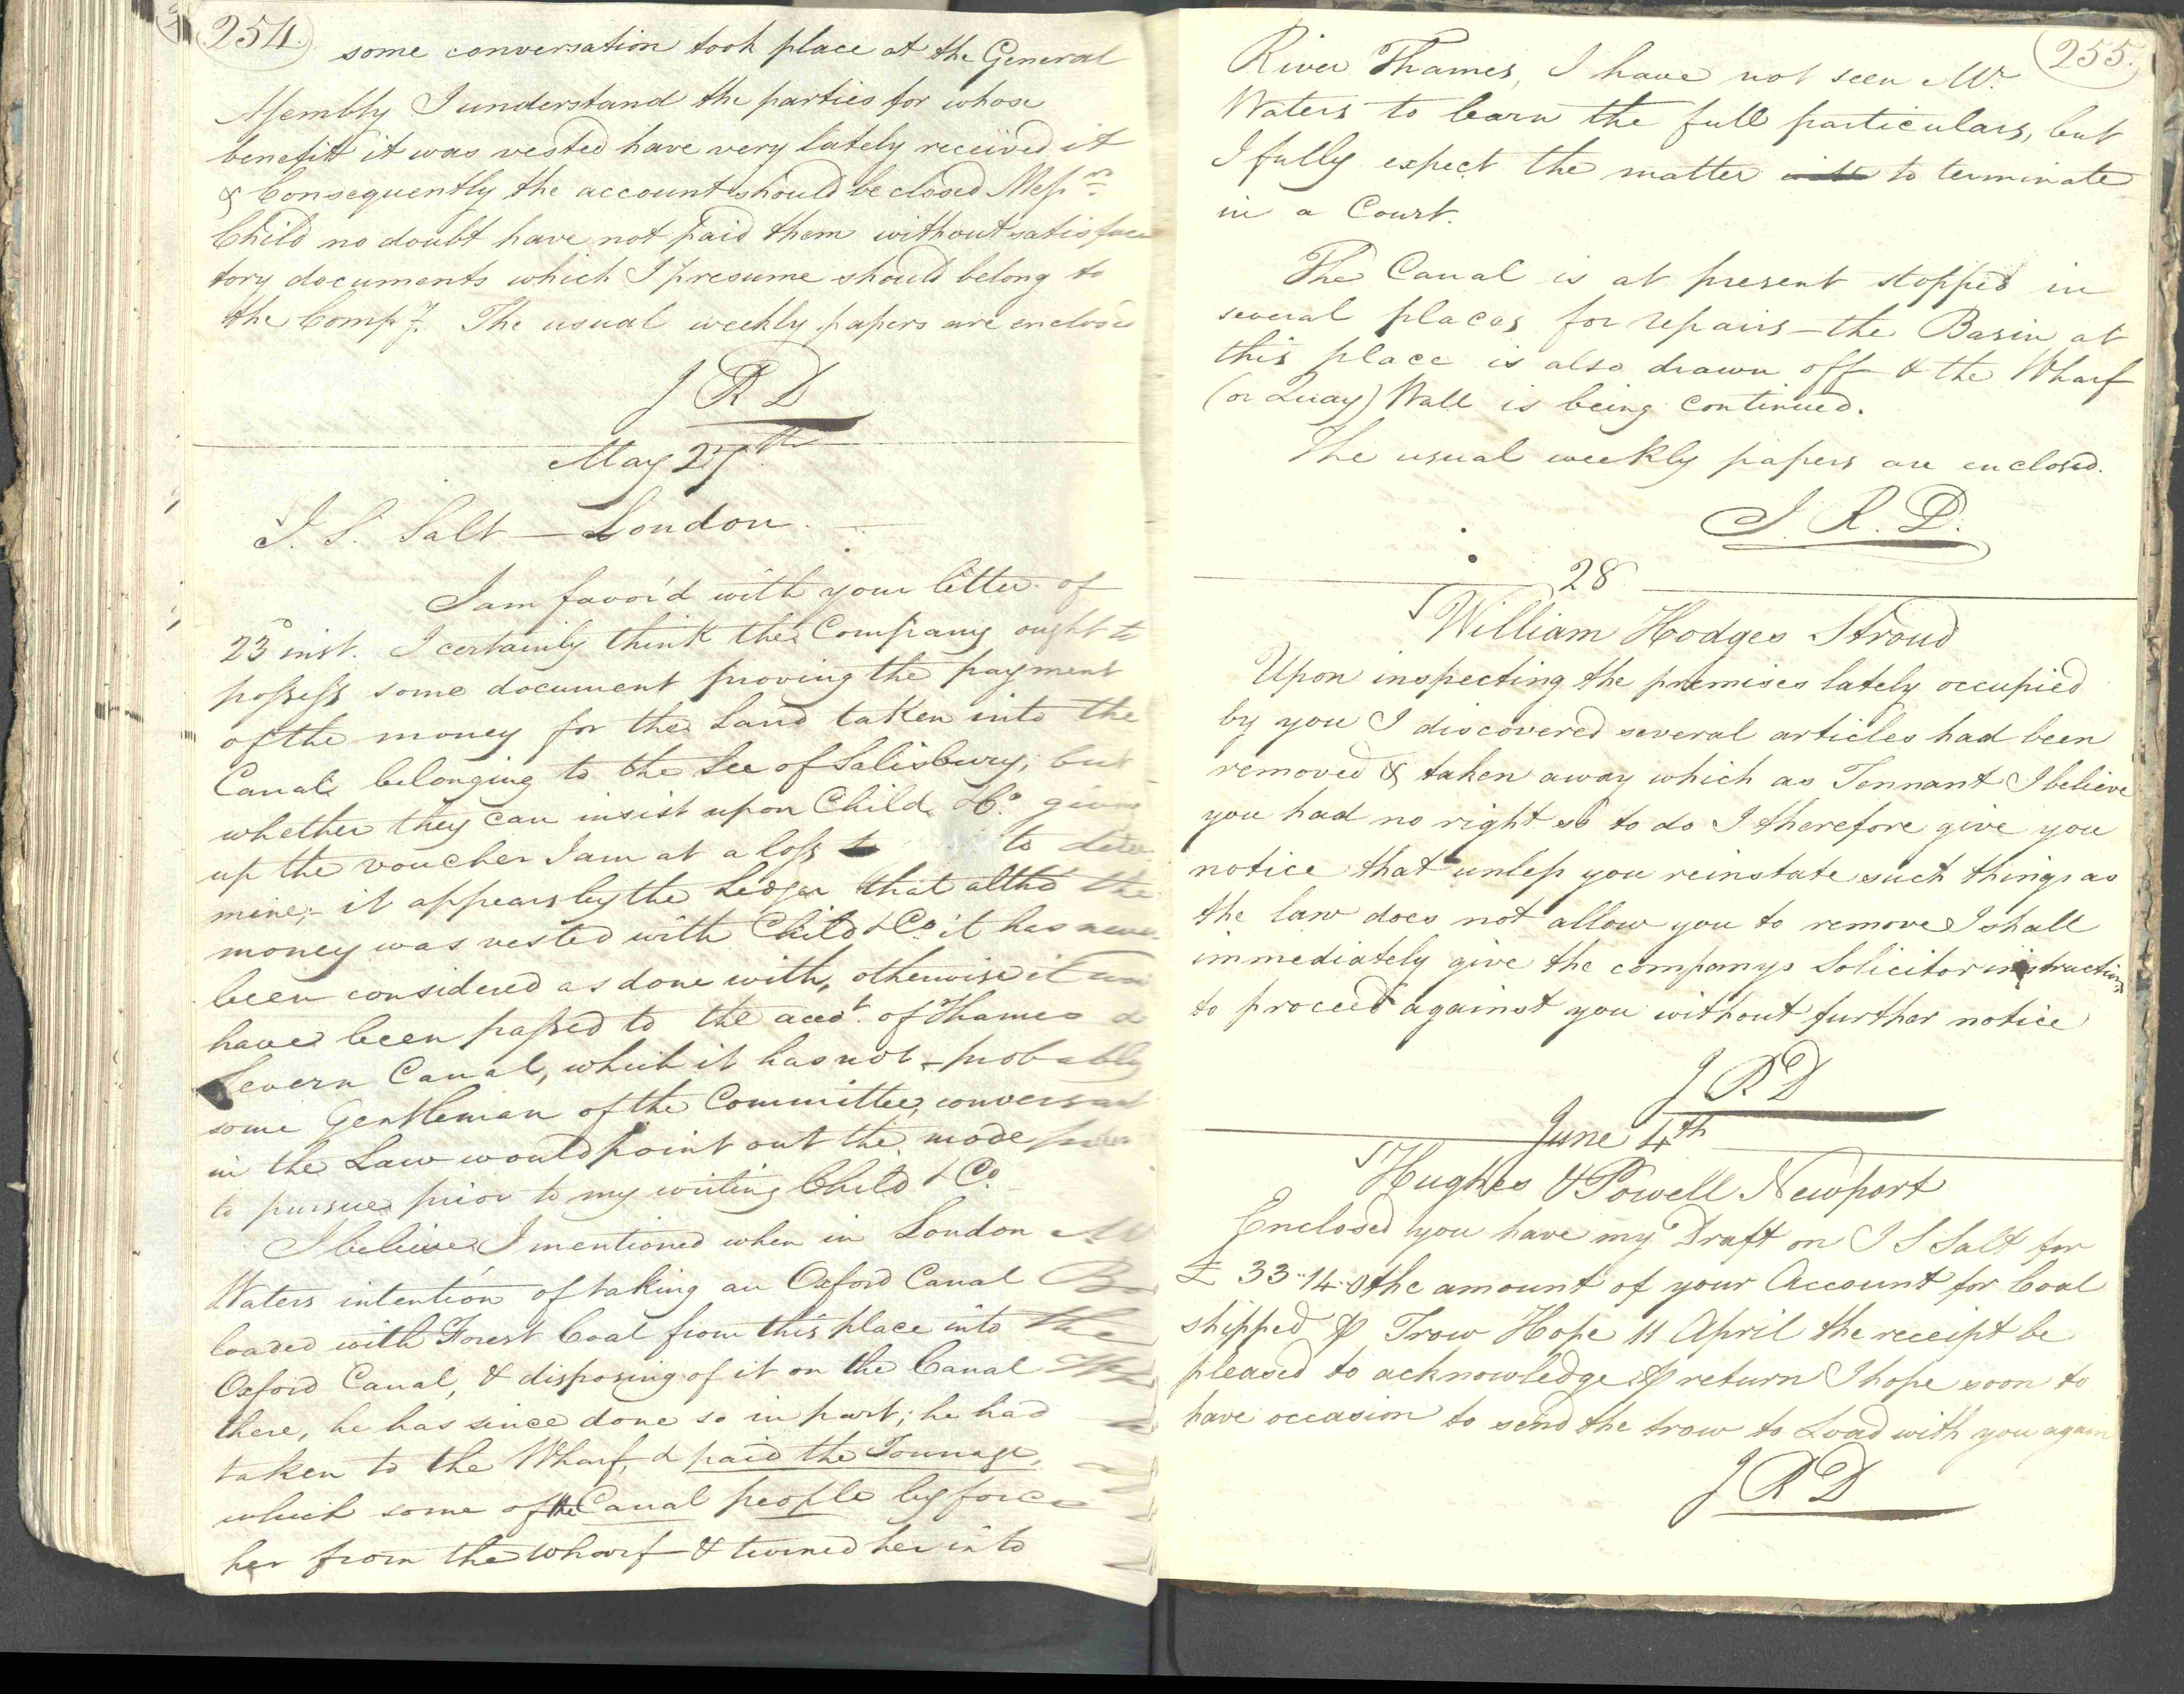 254.
some conversation took place at the General
Assembly I understand the parties for whose
benefit it was vested have very lately received it
& Consequently the account should be closed Messrs
Child no doubt have not paid them without satisfac
tory documents which I presume should belong to
the Compy. The usual weekly papers are enclosed
J R D
May 27th
I. S. Salt — London.
I am favo'd with your letter of
23d inst. I certainly think the Company ought to
possess some document proving the payment
of the money for the Land taken into the
Canal belonging to the See of Salisbury; but
whether they can insist upon Child & Co. giving
up the voucher I am at a loss to deter
mine;- it appears by the Ledger that altho' the
money was vested with Child & Co. it has never
been considered as done with, otherwise it
have been passed to the accot. of Thames &
Severn Canal, which it has not - probably
some Gentleman of the Committee, conversant
in the Law would point out the mode
to pursue prior to my writing Child & Co.
I believe I mentioned when in London Mr
Waters intention of taking an Oxford Canal
loaded with Forest Coal from this place into the
Oxford Canal, & disposing of it on the Canal
there, he has since done so in part; he had
taken to the Wharf, & paid the Tonnage,
which some of the Canal people by force
her from the Wharf & turned her into
255.
River Thames, I have not seen Mr.
Waters to learn the full particulars, but
I fully expect the matter to terminate
in a Court.
The Canal is at present stopped in
several places for repairs — the Basin at
this place is also drawn off & the Wharf
(or Quay) Wall is being continued.
The usual weekly papers are enclosed.
J. R. D.
28
William Hodges Stroud
Upon inspecting the premises lately occupied
by you I discovered several articles had been
removed & taken away which as Tennant I believe
you had no right so to do I therefore give you
notice that unless you reinstate such things as
the law does not allow you to remove I shall
immediately give the companys Solicitor instructions
to proceed against you without further notice
J R D
June 4th
Hughes & Powell Newport
Enclosed you have my Draft on I S Salt for
£ 33-14-0 the amount of your Account for Coal
shipped ⅌ Trow Hope 11 April the receipt be
pleased to acknowledge ⅌ return I hope soon to
have occasion to send the trow to Load with you again
J R D